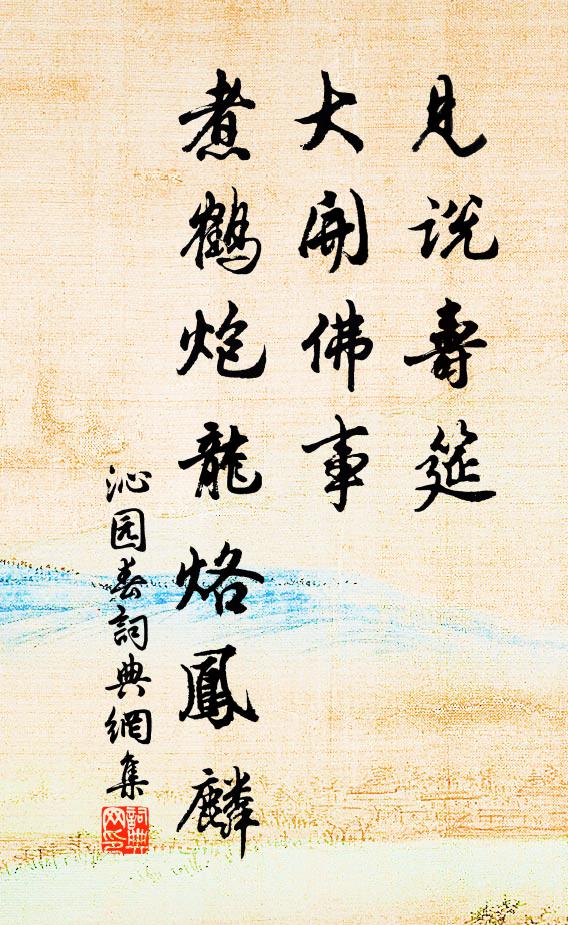 見说壽筵
大開佛事
煮鶴炮龍烙鳳麟
沁园春詞典網集
詞典網印